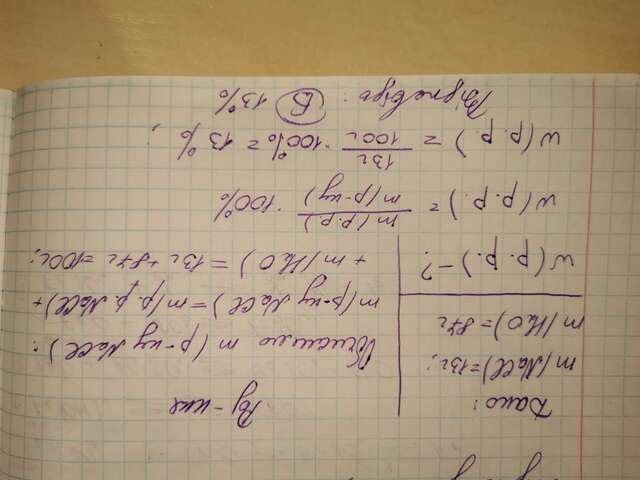 Дано:
m(NaCl)=13г;
m(H₂O)=87г
w(р.р.)-?
Роз-ння
m(р-ну NaCl):
m(р-ну NaCl)=m(р.р. NaCl)+
+ m(H₂O)=13г+87г=100г;
w(р.р.)= m(р.р.)/m(р-ну) ·100%
w(р.р.) = 13г/100г ·100%=13%;
Відповідь: Б 13%